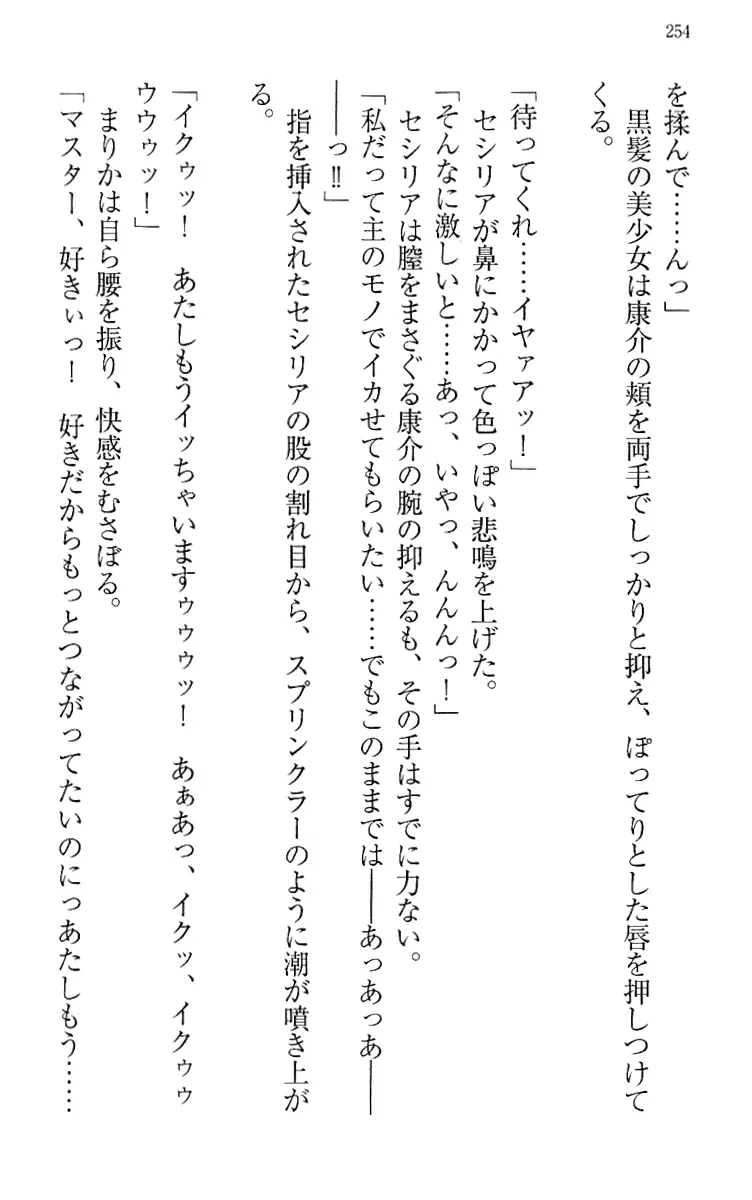 254
を揉んで……んっ」
　黒髪の美少女は康介の頬を両手でしっかりと抑え、ぽってりとした唇を押しつけて
くる。
「待ってくれ……イヤァアッ！」
　セシリアが鼻にかかって色っぽい悲鳴を上げた。
「そんなに激しいと……あっ、いやっ、んんんっ！」
　セシリアは膣をまさぐる康介の腕の抑えるも、その手はすでに力ない。
「私だって主のモノでイカせてもらいたい……でもこのままでは――あっあっあ――
――っ‼」
　指を挿入されたセシリアの股の割れ目から、スプリンクラーのように潮が噴き上が
る。
「イクゥッ！　あたしもうイッちゃいますゥゥゥッ！　あぁあっ、イクッ、イクゥゥ
ウウゥッ！」
　まりかは自ら腰を振り、快感をむさぼる。
「マスター、好きぃっ！　好きだからもっとつながってたいのにっあたしもう……